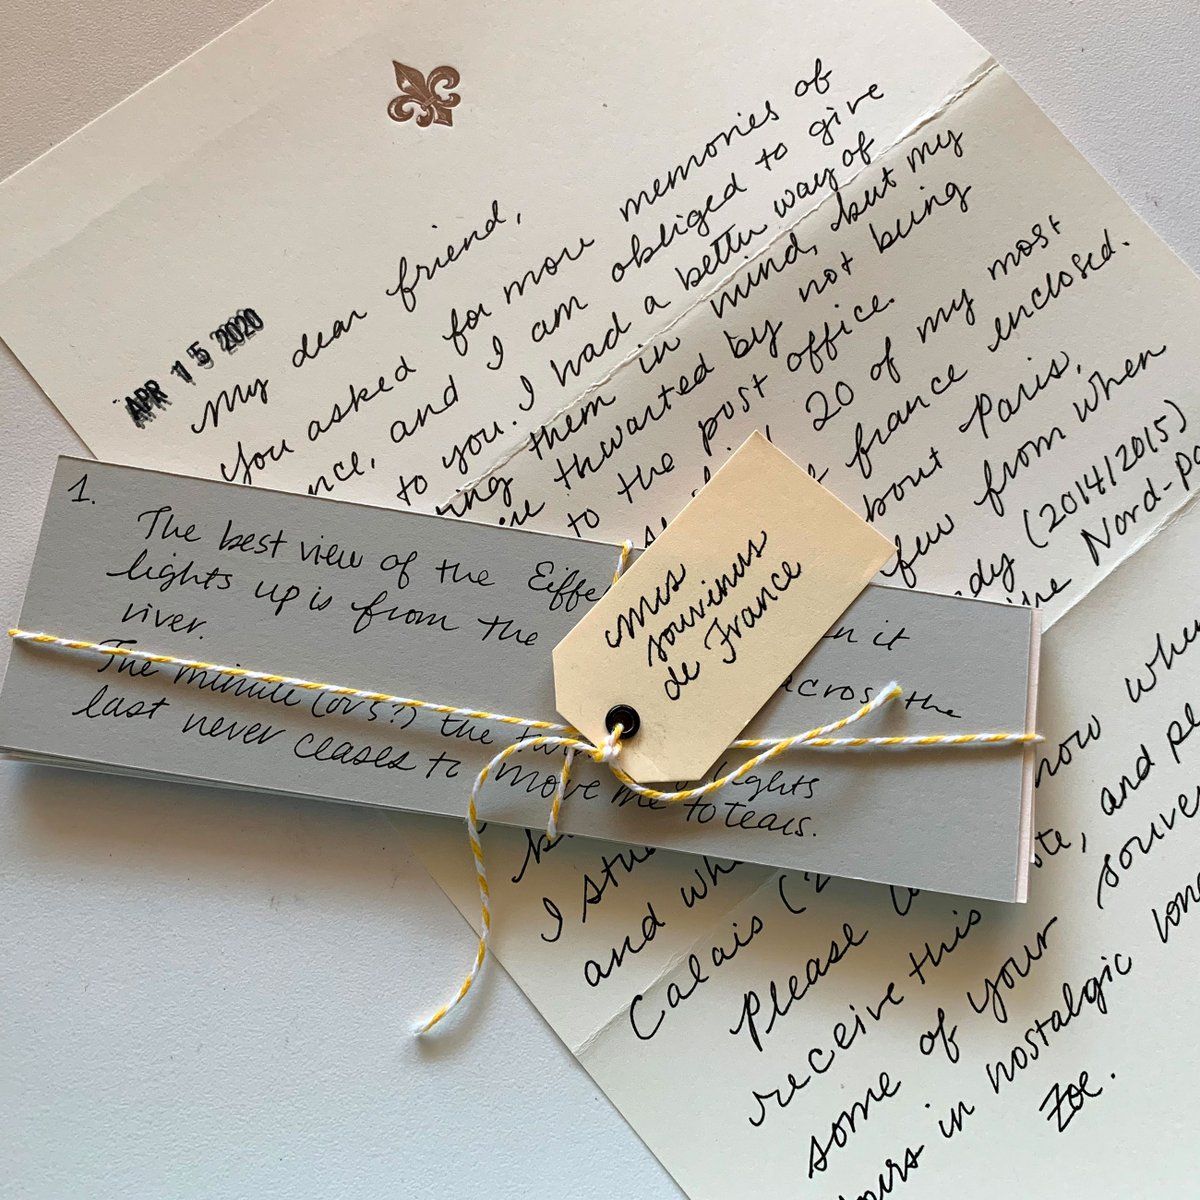 APR 15 2020
My dear friend,
You asked for more memories of
nce, and I am obliged to give
to you. I had a better way of
ing them in mind, but my
re thwarted by not being
to the post office.
20 of my most
france enclosed.
bout Paris,
few from when
dy (2014/2015)
Nord-Pa
I stu
and wh
Calais (2
Please
now whe
receive this
te, and pe
some of your souve
ours in nostalgic long
Zoe.
1.
The best view of the Eiffe
n it
lights up is from the
across the
river.
The minute (or 5?) the twin
lights
last never ceases to move me to tears.
mes
souvenirs
de France